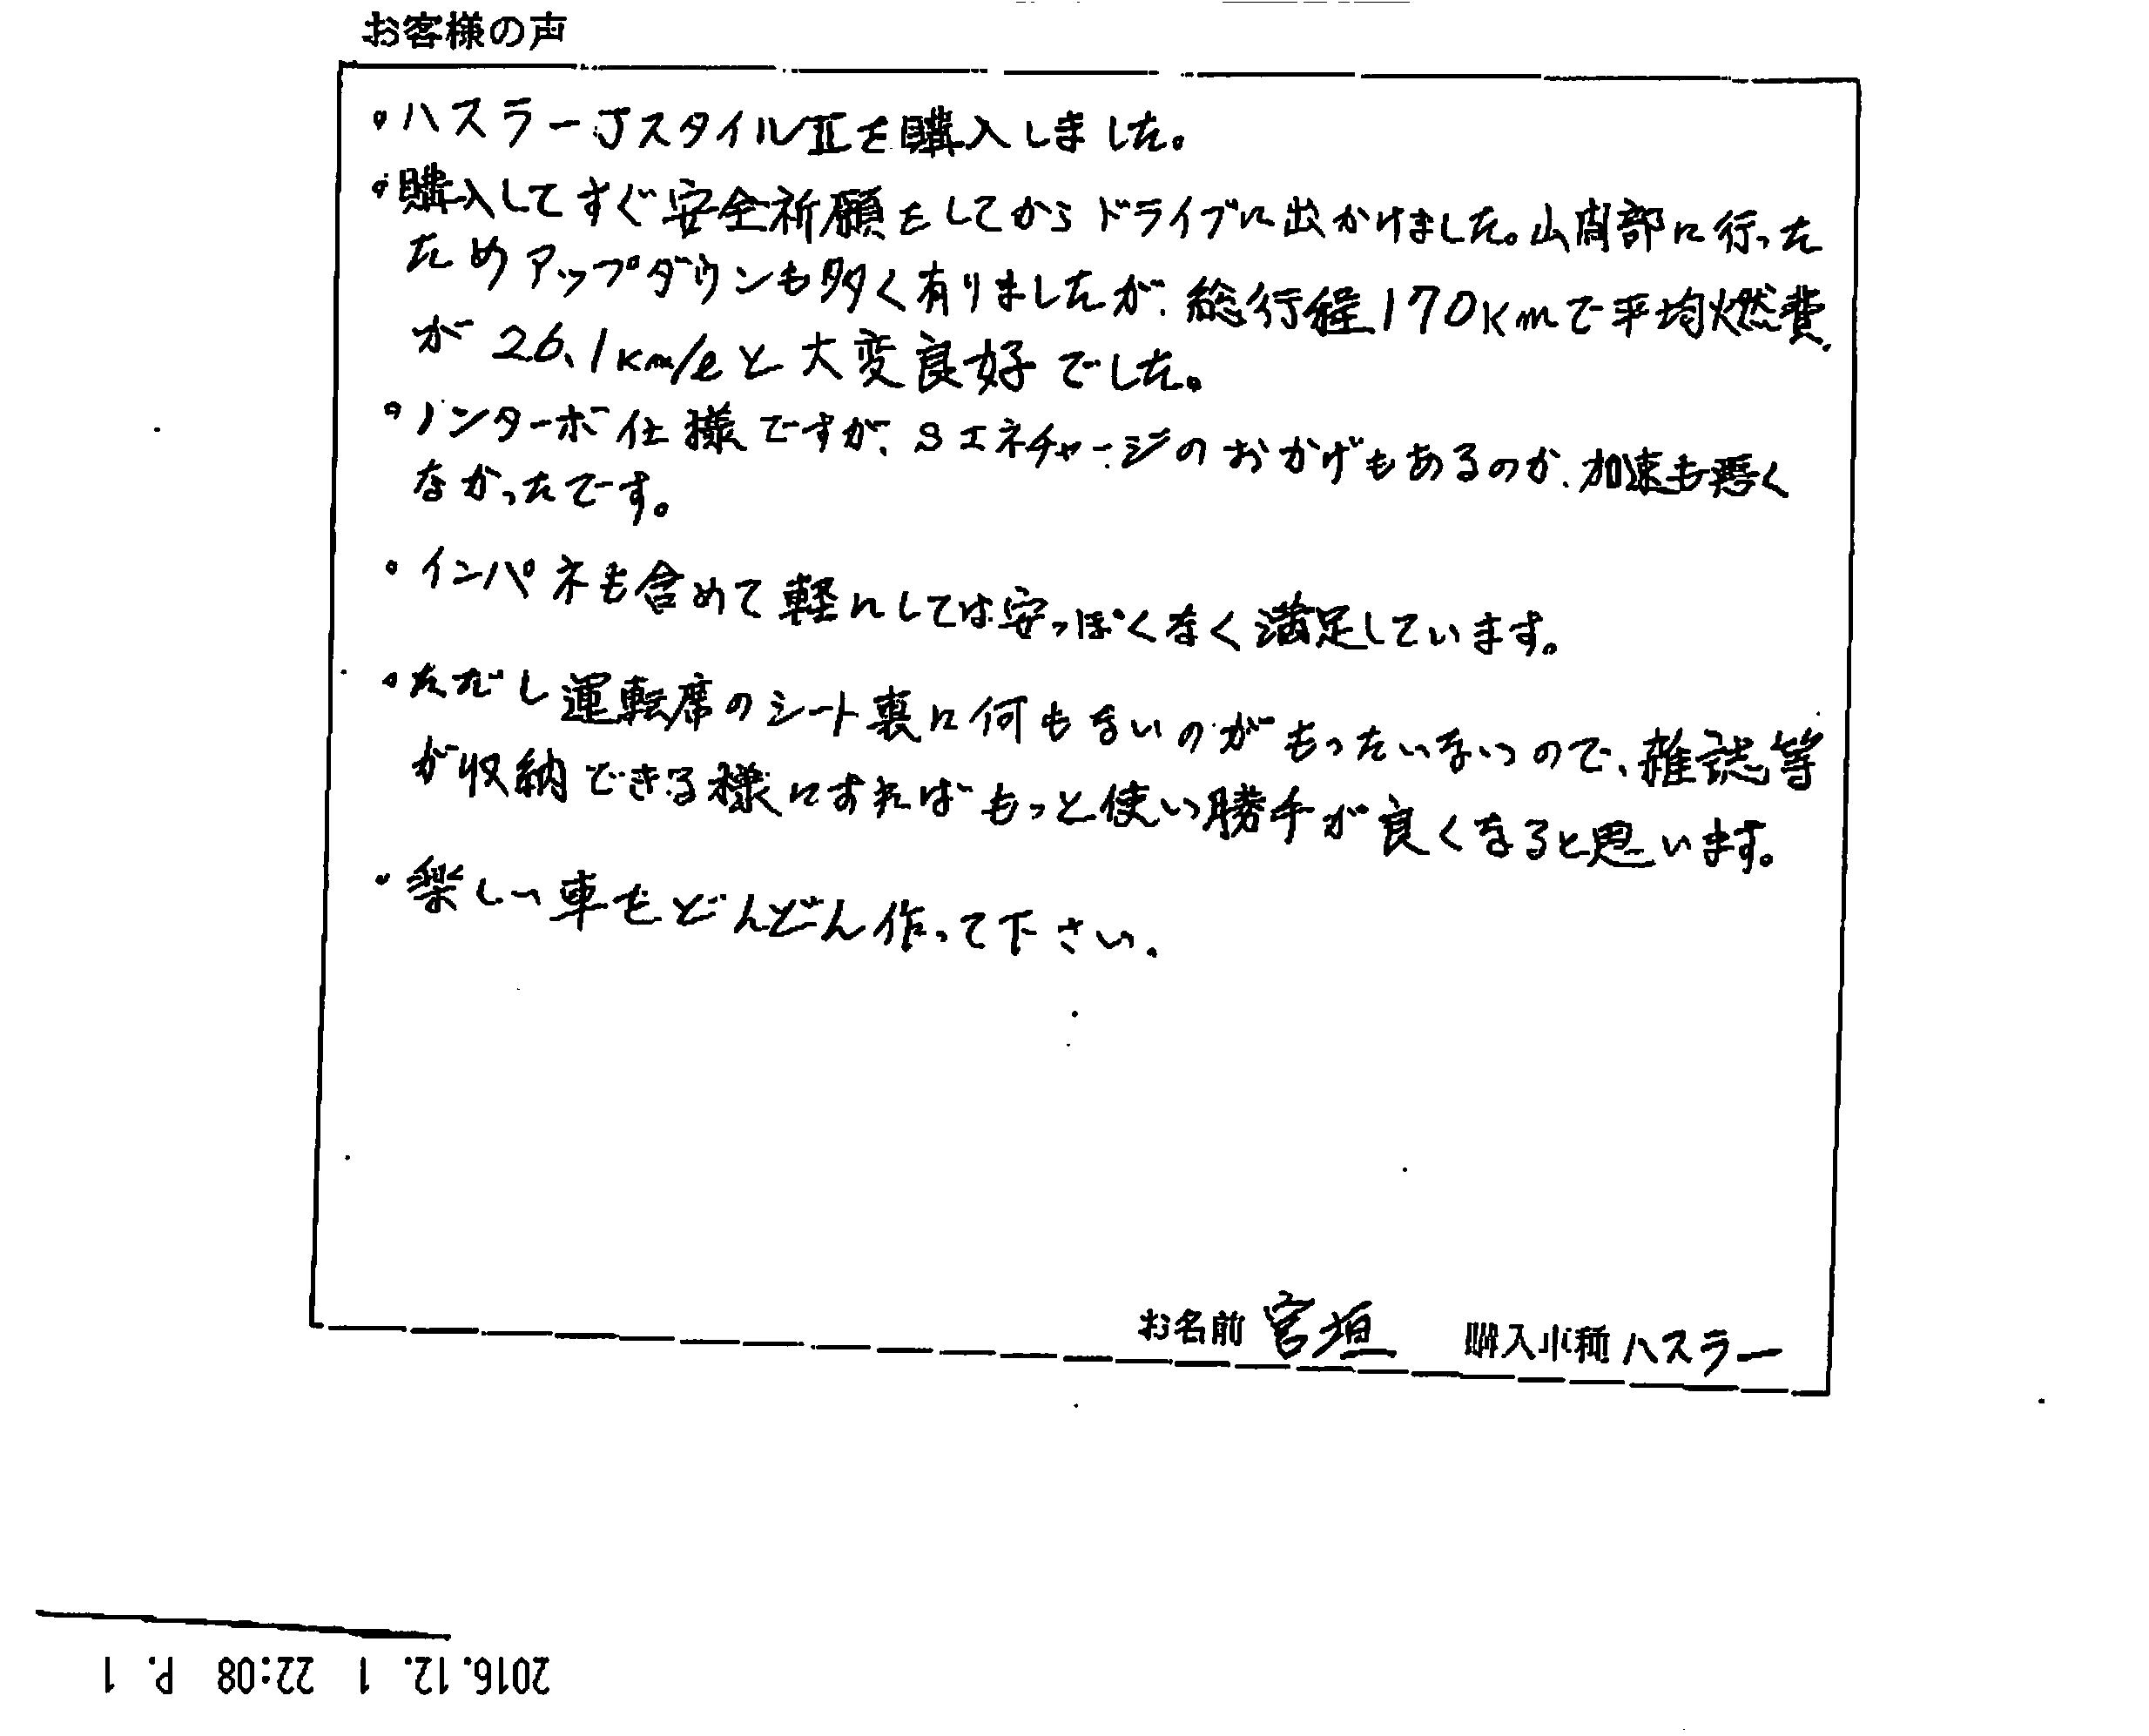 お客様の声
。ハスラーJスタイルⅡを購入しました。
・購入してすぐ安全祈願をしてからドライブに出かけました。山間部に行った
ためアップダウンも多く有りましたが、総行程170kmで平均燃費
が26.1km/ℓと大変良好でした。
。ノンターボ仕様ですが、Sエネチャージのおかげもあるのか、加速も悪く
なかったです。
・インパネも含めて軽にしては安っぽくなく満足しています。
・ただし運転席のシート裏に何もないのがもったいないので、雑誌等
が収納できる様にすればもっと使い勝手が良くなると思います。
・楽しい車をどんどん作って下さい。
お名前 宮垣 購入車種 ハスラー
2016.12. 1 22:08 P. 1